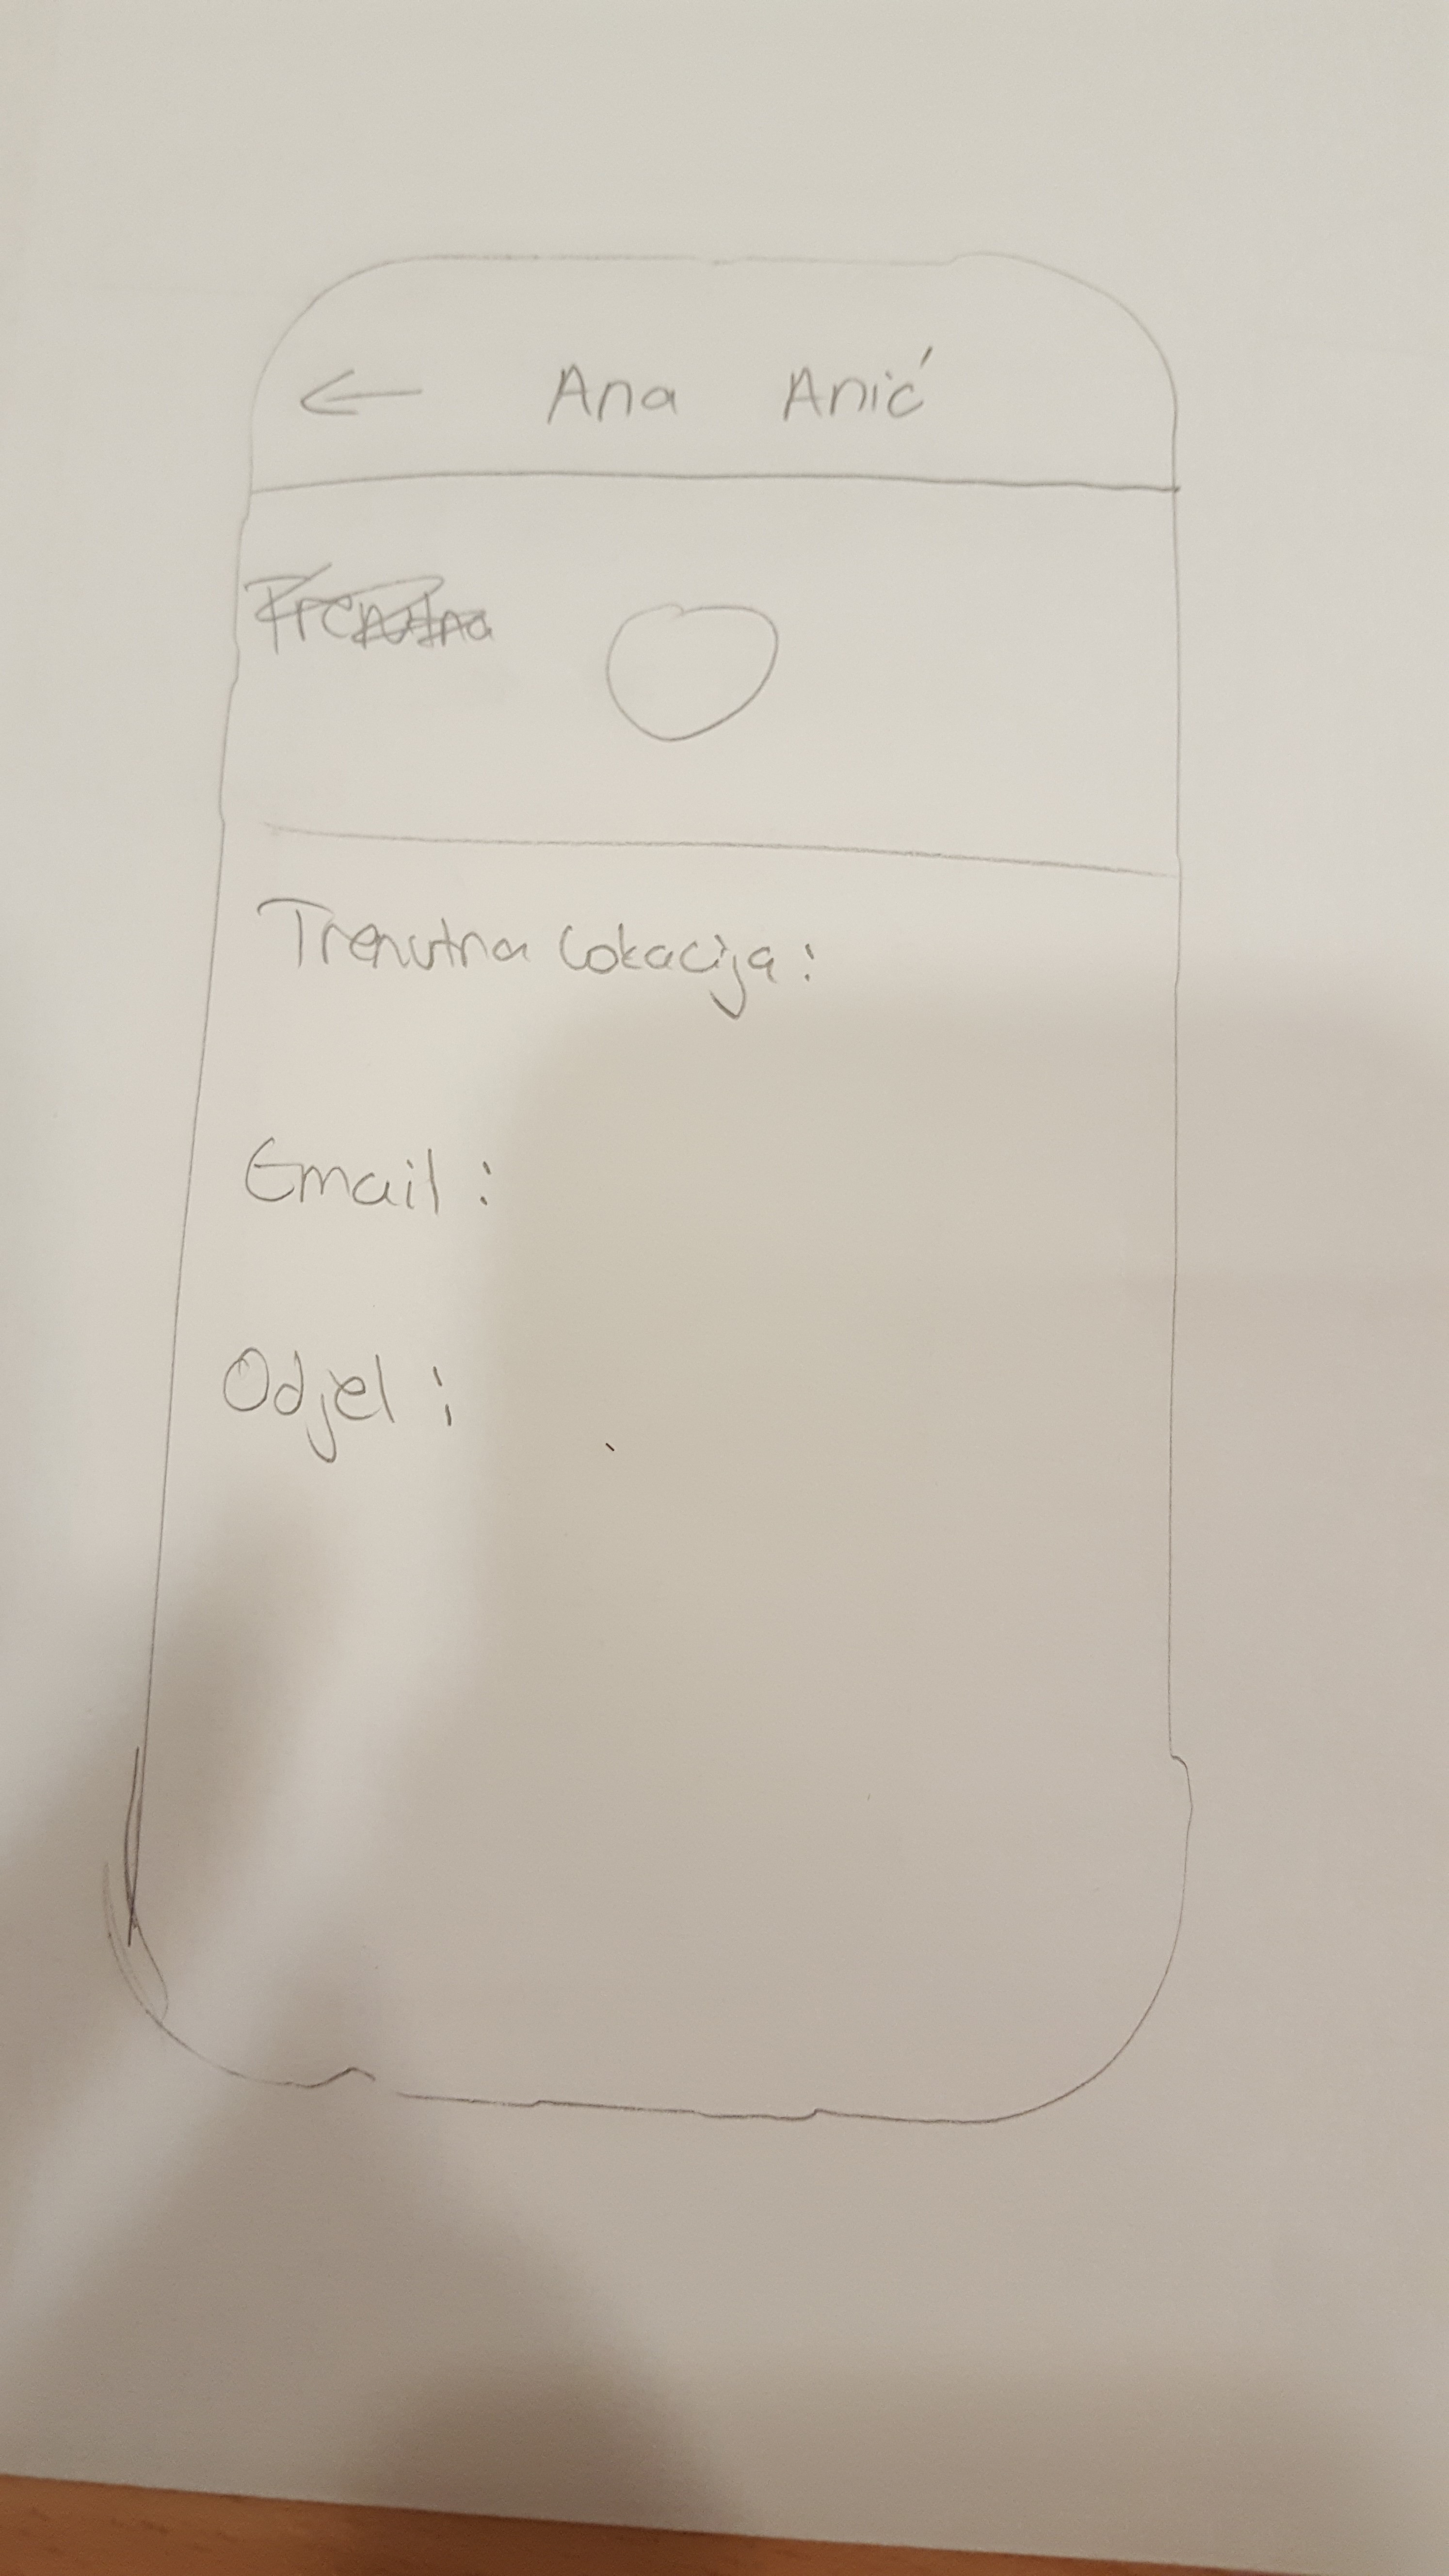 ← Ana Anić
Trenutna
Trenutna lokacija:
Email:
Odjel: